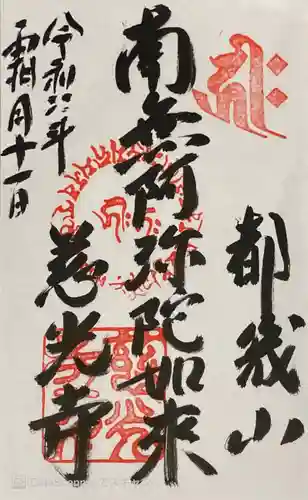 都幾山
南無阿弥陀如来
慈光寺
令和六年
霜月十一日